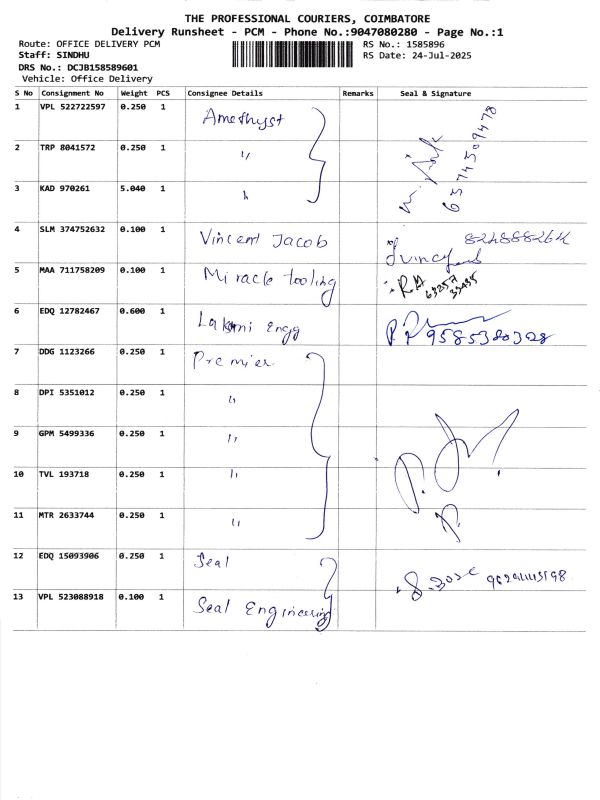 THE PROFESSIONAL COURIERS, COIMBATORE
Delivery Runsheet - PCM - Phone No.:9047080280 - Page No.:1
Route: OFFICE DELIVERY PCM RS No.: 1585896
Staff: SINDHU RS Date: 24-Jul-2025
DRS No.: DCJB158589601
Vehicle: Office Delivery
S No Consignment No Weight PCS Consignee Details Remarks Seal & Signature
1 VPL 522722597 0.250 1 Amethyst
2 TRP 8041572 0.250 1 "
3 KAD 970261 5.040 1 "
6374509478
4 SLM 374752632 0.100 1 Vincent Jacob
5 MAA 711758209 0.100 1 Miracle tooling
6 EDQ 12782467 0.600 1 Lakshmi Engg
7 DDG 1123266 0.250 1 Premier
8 DPI 5351012 0.250 1 "
9 GPM 5499336 0.250 1 "
10 TVL 193718 0.250 1 "
11 MTR 2633744 0.250 1 "
12 EDQ 15093906 0.250 1 Seal
13 VPL 523088918 0.100 1 Seal Engineering